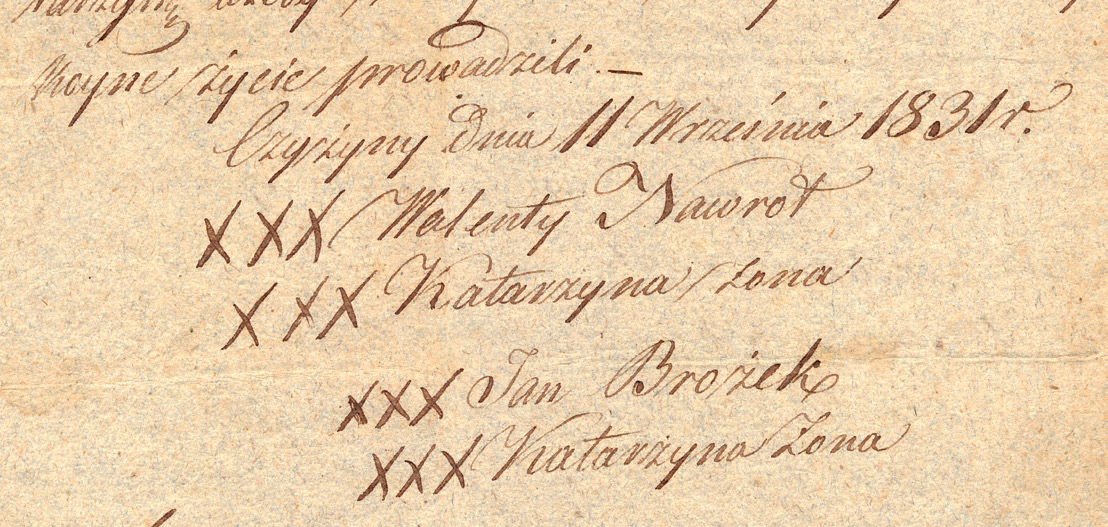 koyne życie prowadzili. —
Czyżyny Dnia 11 Września 1831 r.
XXX Walenty Nawrot
XXX Katarzyna żona
XXX Jan Brożek
XXX Katarzyna Żona